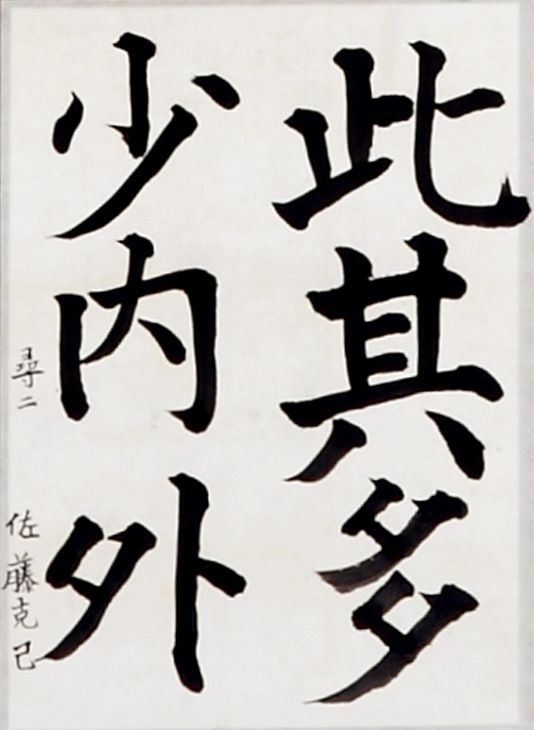 此其多
少内外
尋二 佐藤克己